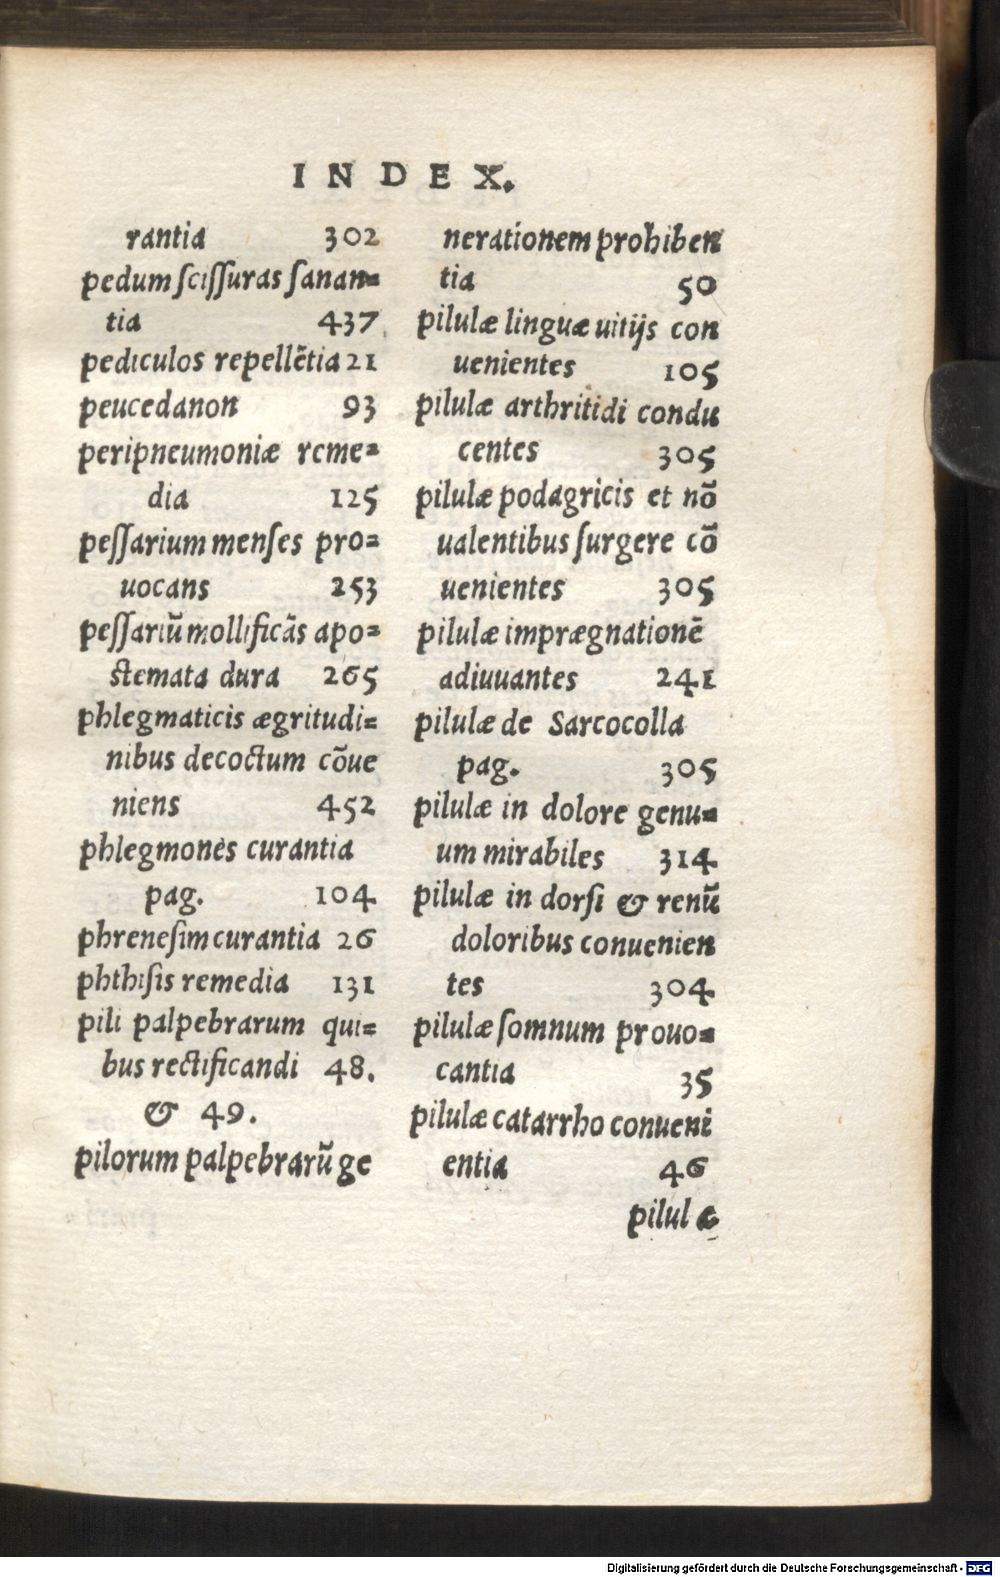 INDEX.
rantia 302
pedum ſciſſuras ſanan=
tia 437
pediculos repellẽtia 21
peucedanon 93
peripneumoniæ reme=
dia 125
peſſarium menſes pro=
uocans 253
peſſariũ mollificãs apo=
ſtemata dura 265
phlegmaticis ægritudi=
nibus decoctum cõue
niens 452
phlegmonès curantia
pag. 104
phreneſim curantia 26
phthiſis remedia 131
pili palpebrarum qui=
bus rectificandi 48.
& 49.
pilorum palpebrarũ ge
nerationem prohiben
tia 50
pilulæ linguæ uitijs con
uenientes 105
pilulæ arthritidi condu
centes 305
pilulæ podagricis et nõ
ualentibus ſurgere cõ
uenientes 305
pilulæ imprægnationẽ
adiuuantes 241
pilulæ de Sarcocolla
pag. 305
pilulæ in dolore genu=
um mirabiles 314
pilulæ in dorſi & renũ
doloribus conuenien
tes 304
pilulæ ſomnum prouo=
cantia 35
pilulæ catarrho conueni
entia 46
pilulæ
Digitalisierung gefördert durch die Deutsche Forschungsgemeinschaft - DFG